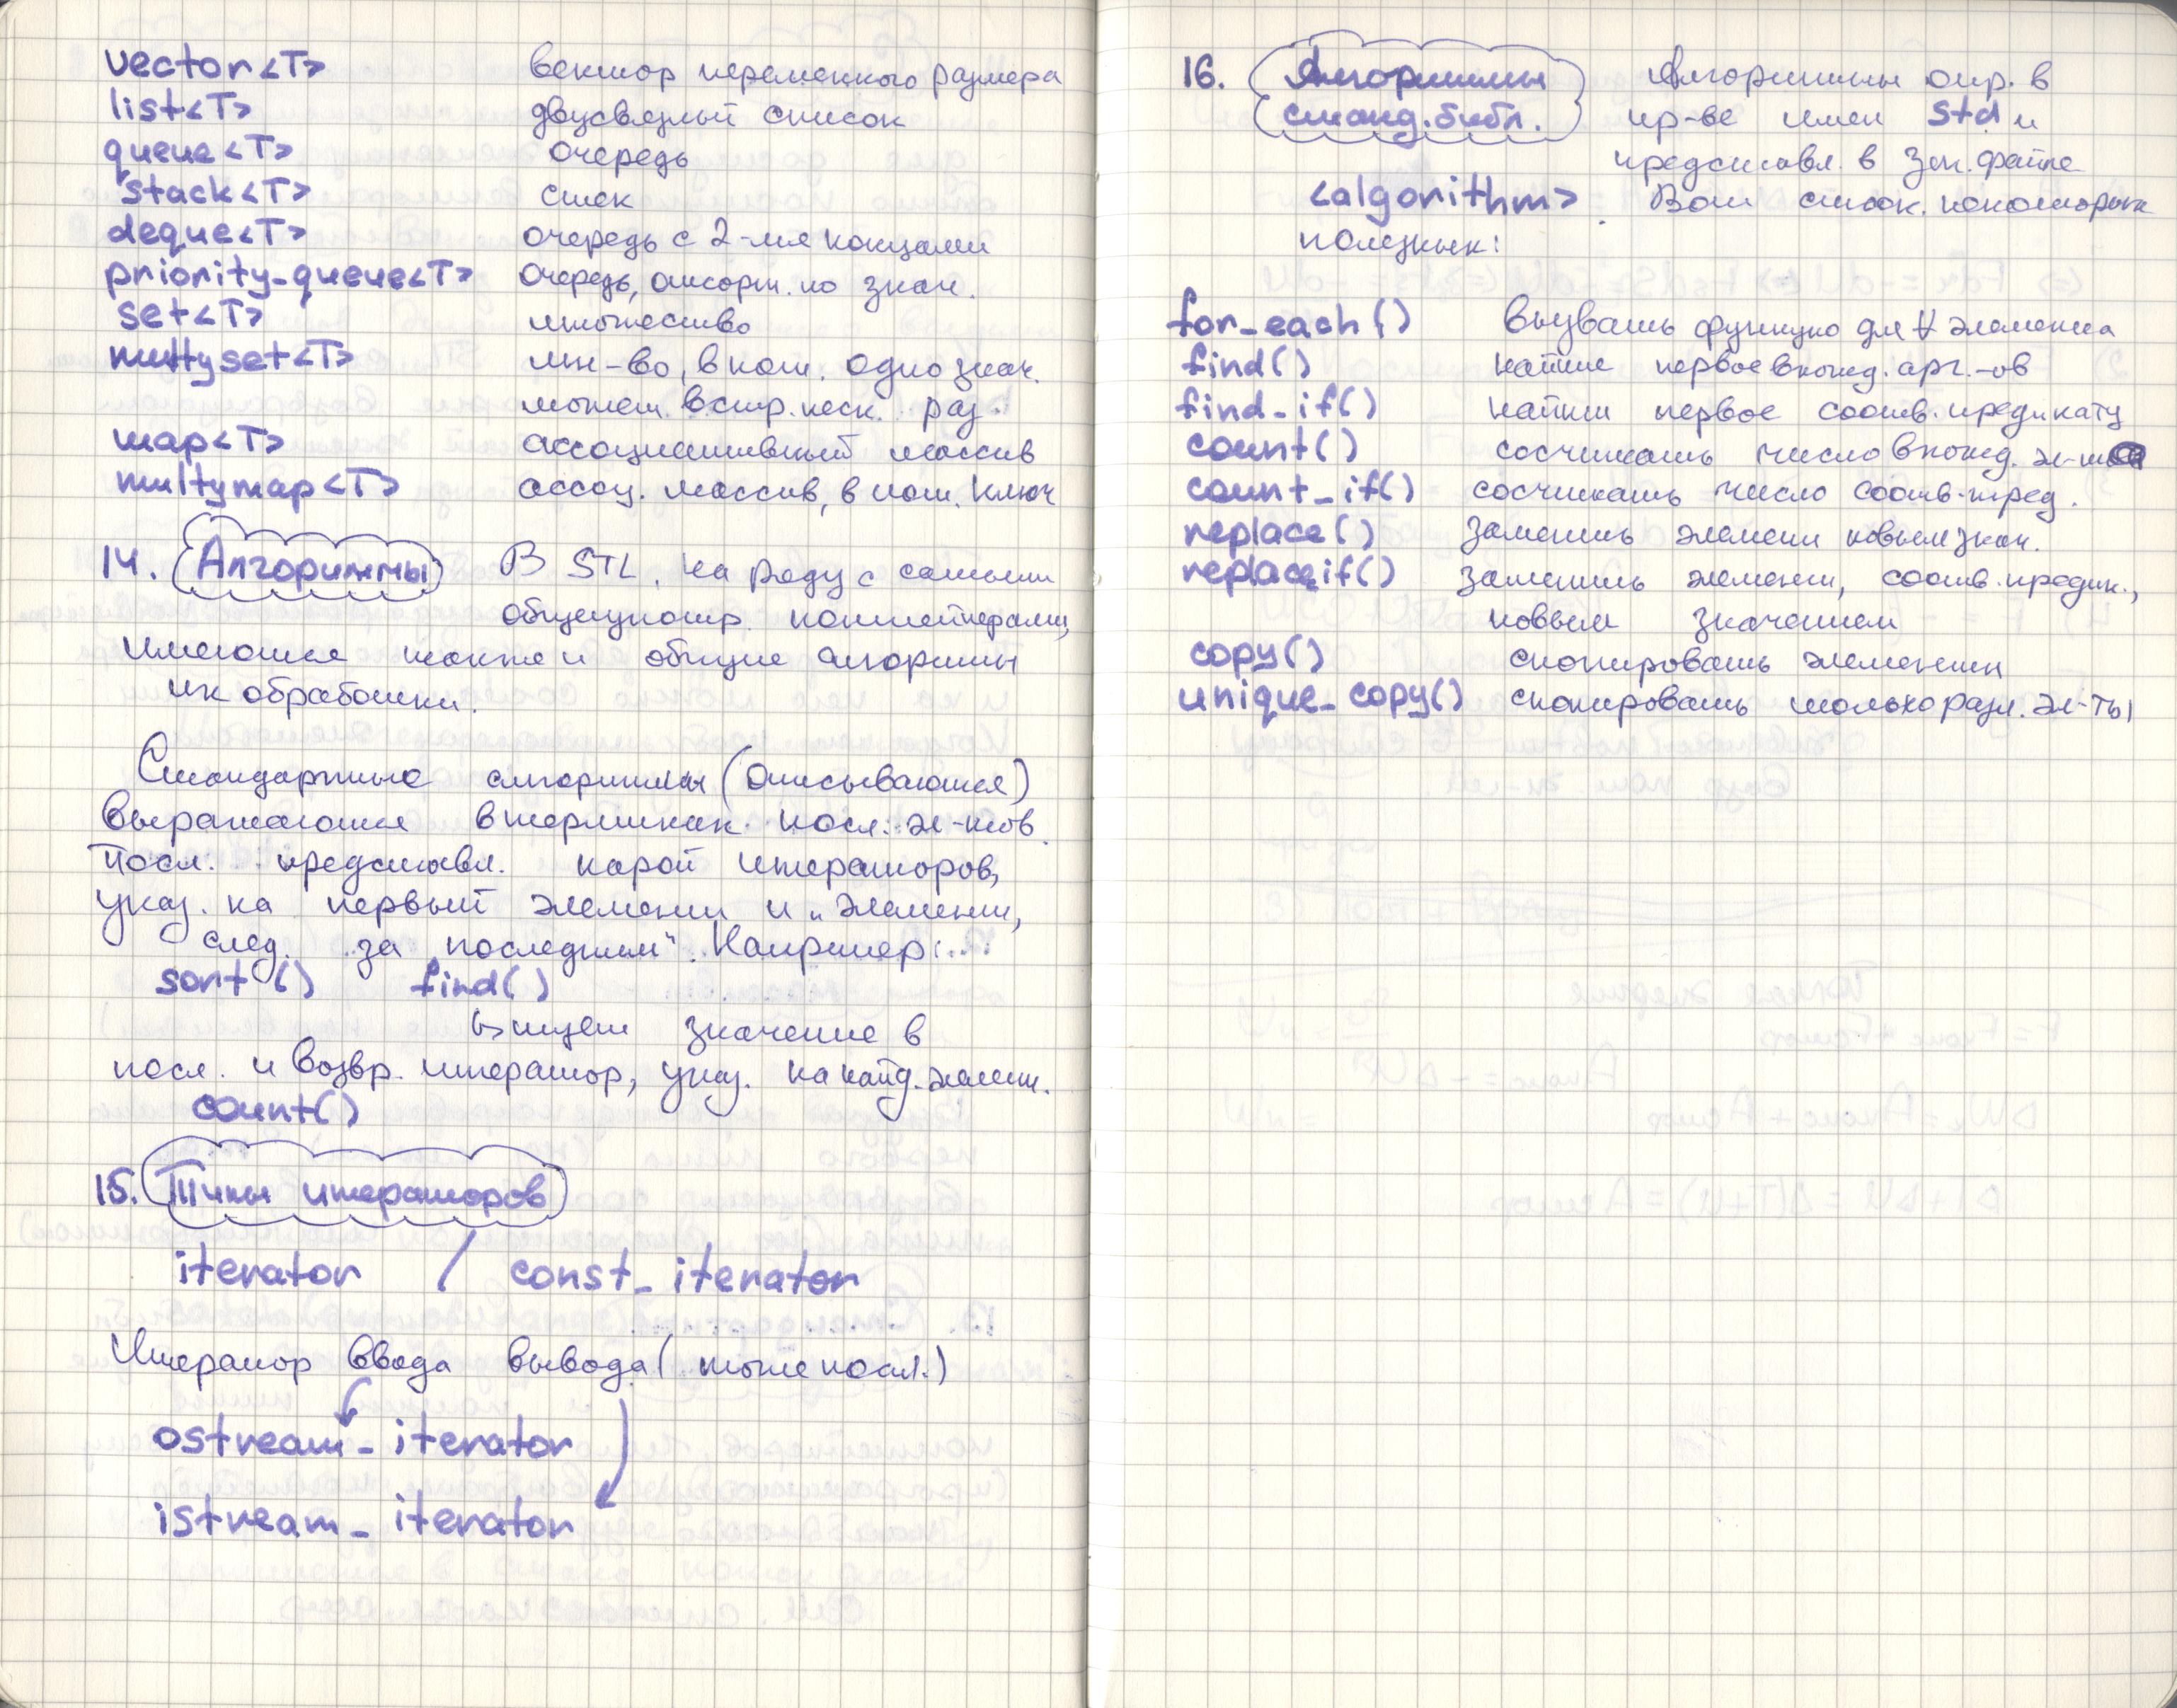 vector<T> вектор переменного размера
list<T> двусвязный список
queue<T> очередь
stack<T> стек
deque<T> очередь с 2-мя концами
priority_queue<T> очередь, отсорт. по знач.
set<T> множество
multyset<T> мн-во, в кот. одно знач.
может. встр. неск. раз.
map<T> ассоциативный массив
multymap<T> ассоц. массив, в кот. ключ
14. Алгоритмы В STL, на ряду с самыми
общеупотр. контейнерами,
имеются также и общие алгоритмы
их обработки.
Стандартные алгоритмы (описываются)
выражаются в терминах посл. эл-тов.
Посл. представл. парой итераторов,
указ. на первый элемент и „элемент,
след. за последним“. Например:
sort() find()
ищет значение в
посл. и возвр. итератор, указ. на найд. элемент.
count()
15. Типы итераторов
iterator / const_iterator
Итератор ввода вывода (тоже посл.)
ostream_iterator
istream_iterator
16. Алгоритмы Алгоритмы опр. в
станд. библ. пр-ве имен std и
представл. в заг. файле
<algorithm>. Вот список некоторых
полезных:
for_each() вызвать функцию для ∀ элемента
find() найти первое вхожд. арг.-ов
find_if() найти первое соотв. предикату
count() сосчитать число вхожд. эл-та
count_if() сосчитать число соотв. пред.
replace() заменить элемент новым знач.
replace_if() заменить элемент, соотв. предик.,
новым значением
copy() скопировать элементы
unique_copy() скопировать только разл. эл-ты